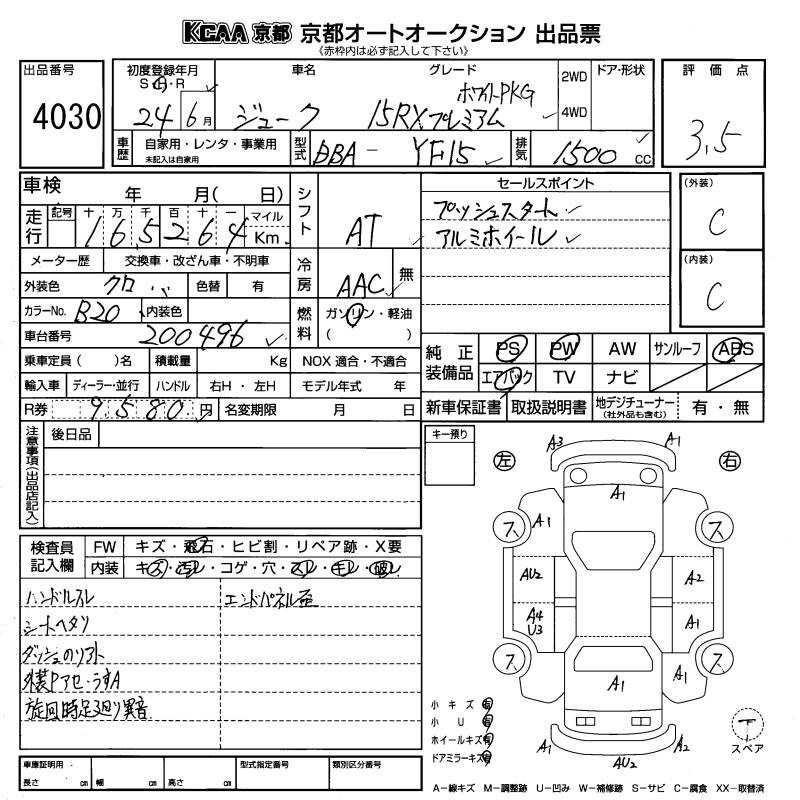 KCAA 京都 京都オートオークション 出品票
《赤枠内は必ず記入して下さい》
出品番号
4030
初度登録年月
S・H・R
24 6月
車名
ジューク
グレード
ホワイトPKG
15RXプレミアム
2WD
4WD
ドア・形状
評価点
3.5
車歴
自家用・レンタ・事業用
未記入は自家用
型式
DBA - YF15
排気
1500 cc
車検 年 月( 日)
走行
記号 十 万 千 百 十 一 マイル
1 6 5 2 6 4 Km
メーター歴 交換車・改ざん車・不明車
外装色 クロ 色替 有
カラーNo. B20 内装色
車台番号 200496
乗車定員( )名 積載量 Kg
輸入車 ディーラー・並行 ハンドル 右H・左H
R券 9580円 名変期限 月 日
シフト
AT
冷房
AAC 無
燃料
ガソリン・軽油
( )
NOX 適合・不適合
モデル年式 年
セールスポイント
プッシュスタート
アルミホイール
(外装)
C
(内装)
C
純正装備品
PS PW AW サンルーフ ABS
エアバック TV ナビ
新車保証書 取扱説明書 地デジチューナー(社外品も含む) 有・無
注意事項(出品店記入)
後日品
キー預り
検査員記入欄
FW キズ・飛石・ヒビ割・リペア跡・X要
内装 キズ・汚レ・コゲ・穴・スレ・モレ・破レ
ハンドルスレ
シートヘタリ
ダッシュのリアト
外装Pアセ・うすA
旋回時足廻り異音
エンドパネル歪
左
右
A3
A1
A1
ス
A1
ス
AU2
A2
A4
U3
A1
ス
ス
A1
A1
A1
A2
AU2
小キズ 有
小U 有
ホイールキズ 有
ドアミラーキズ 有
スペア
車庫証明用
長さ cm 幅 cm 高さ cm
型式指定番号
類別区分番号
A−線キズ M−調整跡 U−凹み W−補修跡 S−サビ C−腐食 XX−取替済